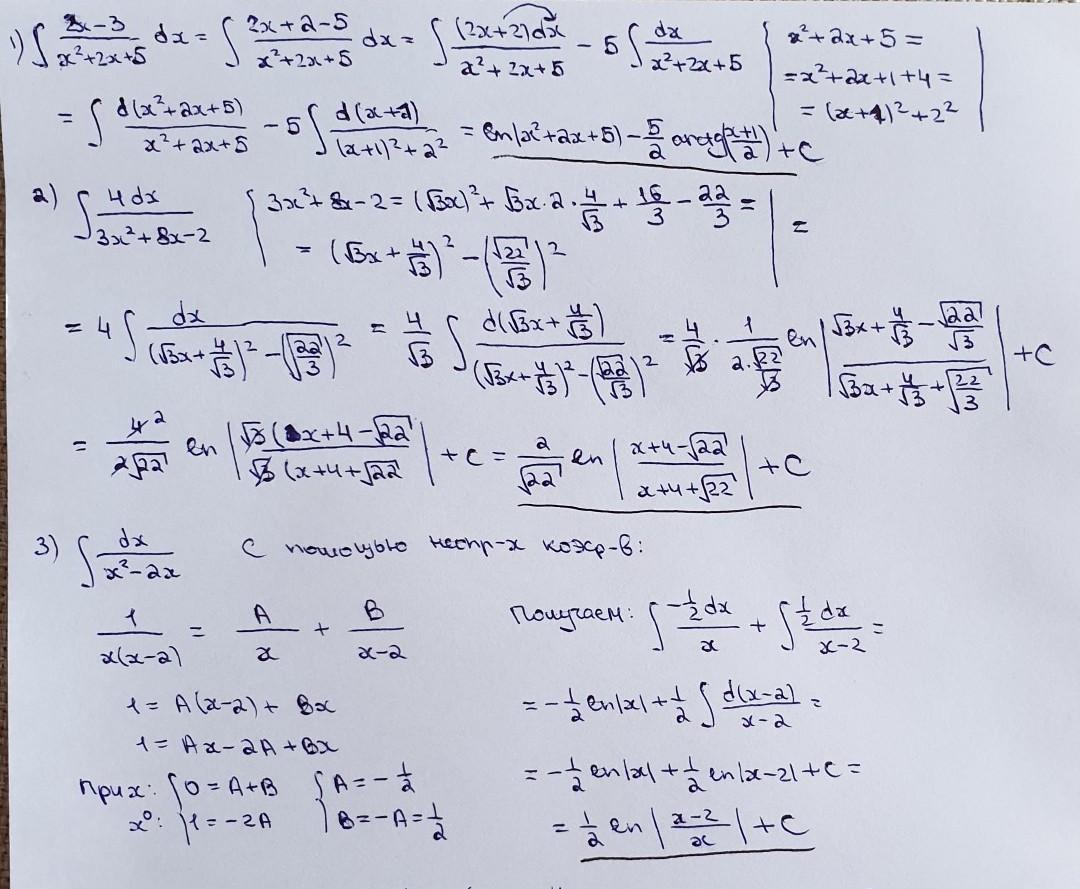 1) ∫ (2x-3)/(x²+2x+5) dx = ∫ (2x+2-5)/(x²+2x+5) dx = ∫ ((2x+2)dx)/(x²+2x+5) - 5 ∫ dx/(x²+2x+5) | x²+2x+5 = = x²+2x+1+4 = = (x+1)²+2² |
= ∫ d(x²+2x+5)/(x²+2x+5) - 5 ∫ d(x+1)/((x+1)²+2²) = ln|x²+2x+5) - 5/2 arctg(x+1)/2) + C
2) ∫ 4dx/(3x²+8x-2) | 3x²+8x-2 = (√3x)² + √3x·2·4/√3 + 16/3 - 22/3 = = (√3x + 4/√3)² - (√22/√3)² | =
= 4 ∫ dx/((√3x+4/√3)² - (√22/3)²) = 4/√3 ∫ d(√3x+4/√3)/((√3x+4/√3)² - (√22/√3)²) = 4/√3 · 1/(2·√22/√3) ln |(√3x+4/√3-√22/√3)/(√3x+4/√3+√22/3)| + C
= 4²/(2√22) ln |(√3(x+4-√22)/(√3(x+4+√22)| + C = 2/√22 ln |(x+4-√22)/(x+4+√22)| + C
3) ∫ dx/(x²-2x) С помощью неопр-х коэф-в:
1/(x(x-2)) = A/x + B/(x-2)
1 = A(x-2) + Bx
1 = Ax-2A+Bx
При x: { 0 = A+B { A = -1/2
x⁰: { 1 = -2A { B = -A = 1/2
Получаем: ∫ (-1/2 dx)/x + ∫ (1/2 dx)/(x-2) =
= -1/2 ln|x| + 1/2 ∫ d(x-2)/(x-2) =
= -1/2 ln|x| + 1/2 ln|x-2| + C =
= 1/2 ln |(x-2)/x| + C